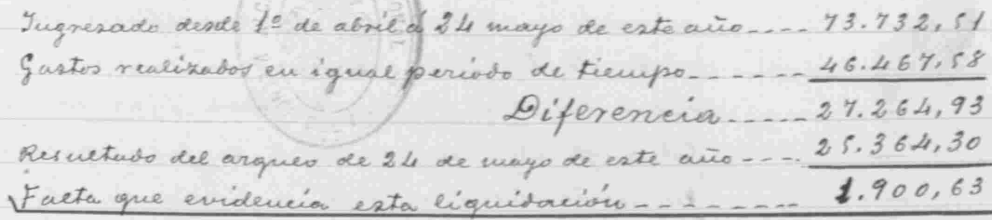 Ingresado desde 1º de abril á 24 mayo de este año.... 73.732,51
Gastos realizados en igual periodo de tiempo....... 46.467,58
Diferencia..... 27.264,93
Resultado del arqueo de 24 de mayo de este año.... 25.364,30
Falta que evidencia esta liquidación......... 1.900,63